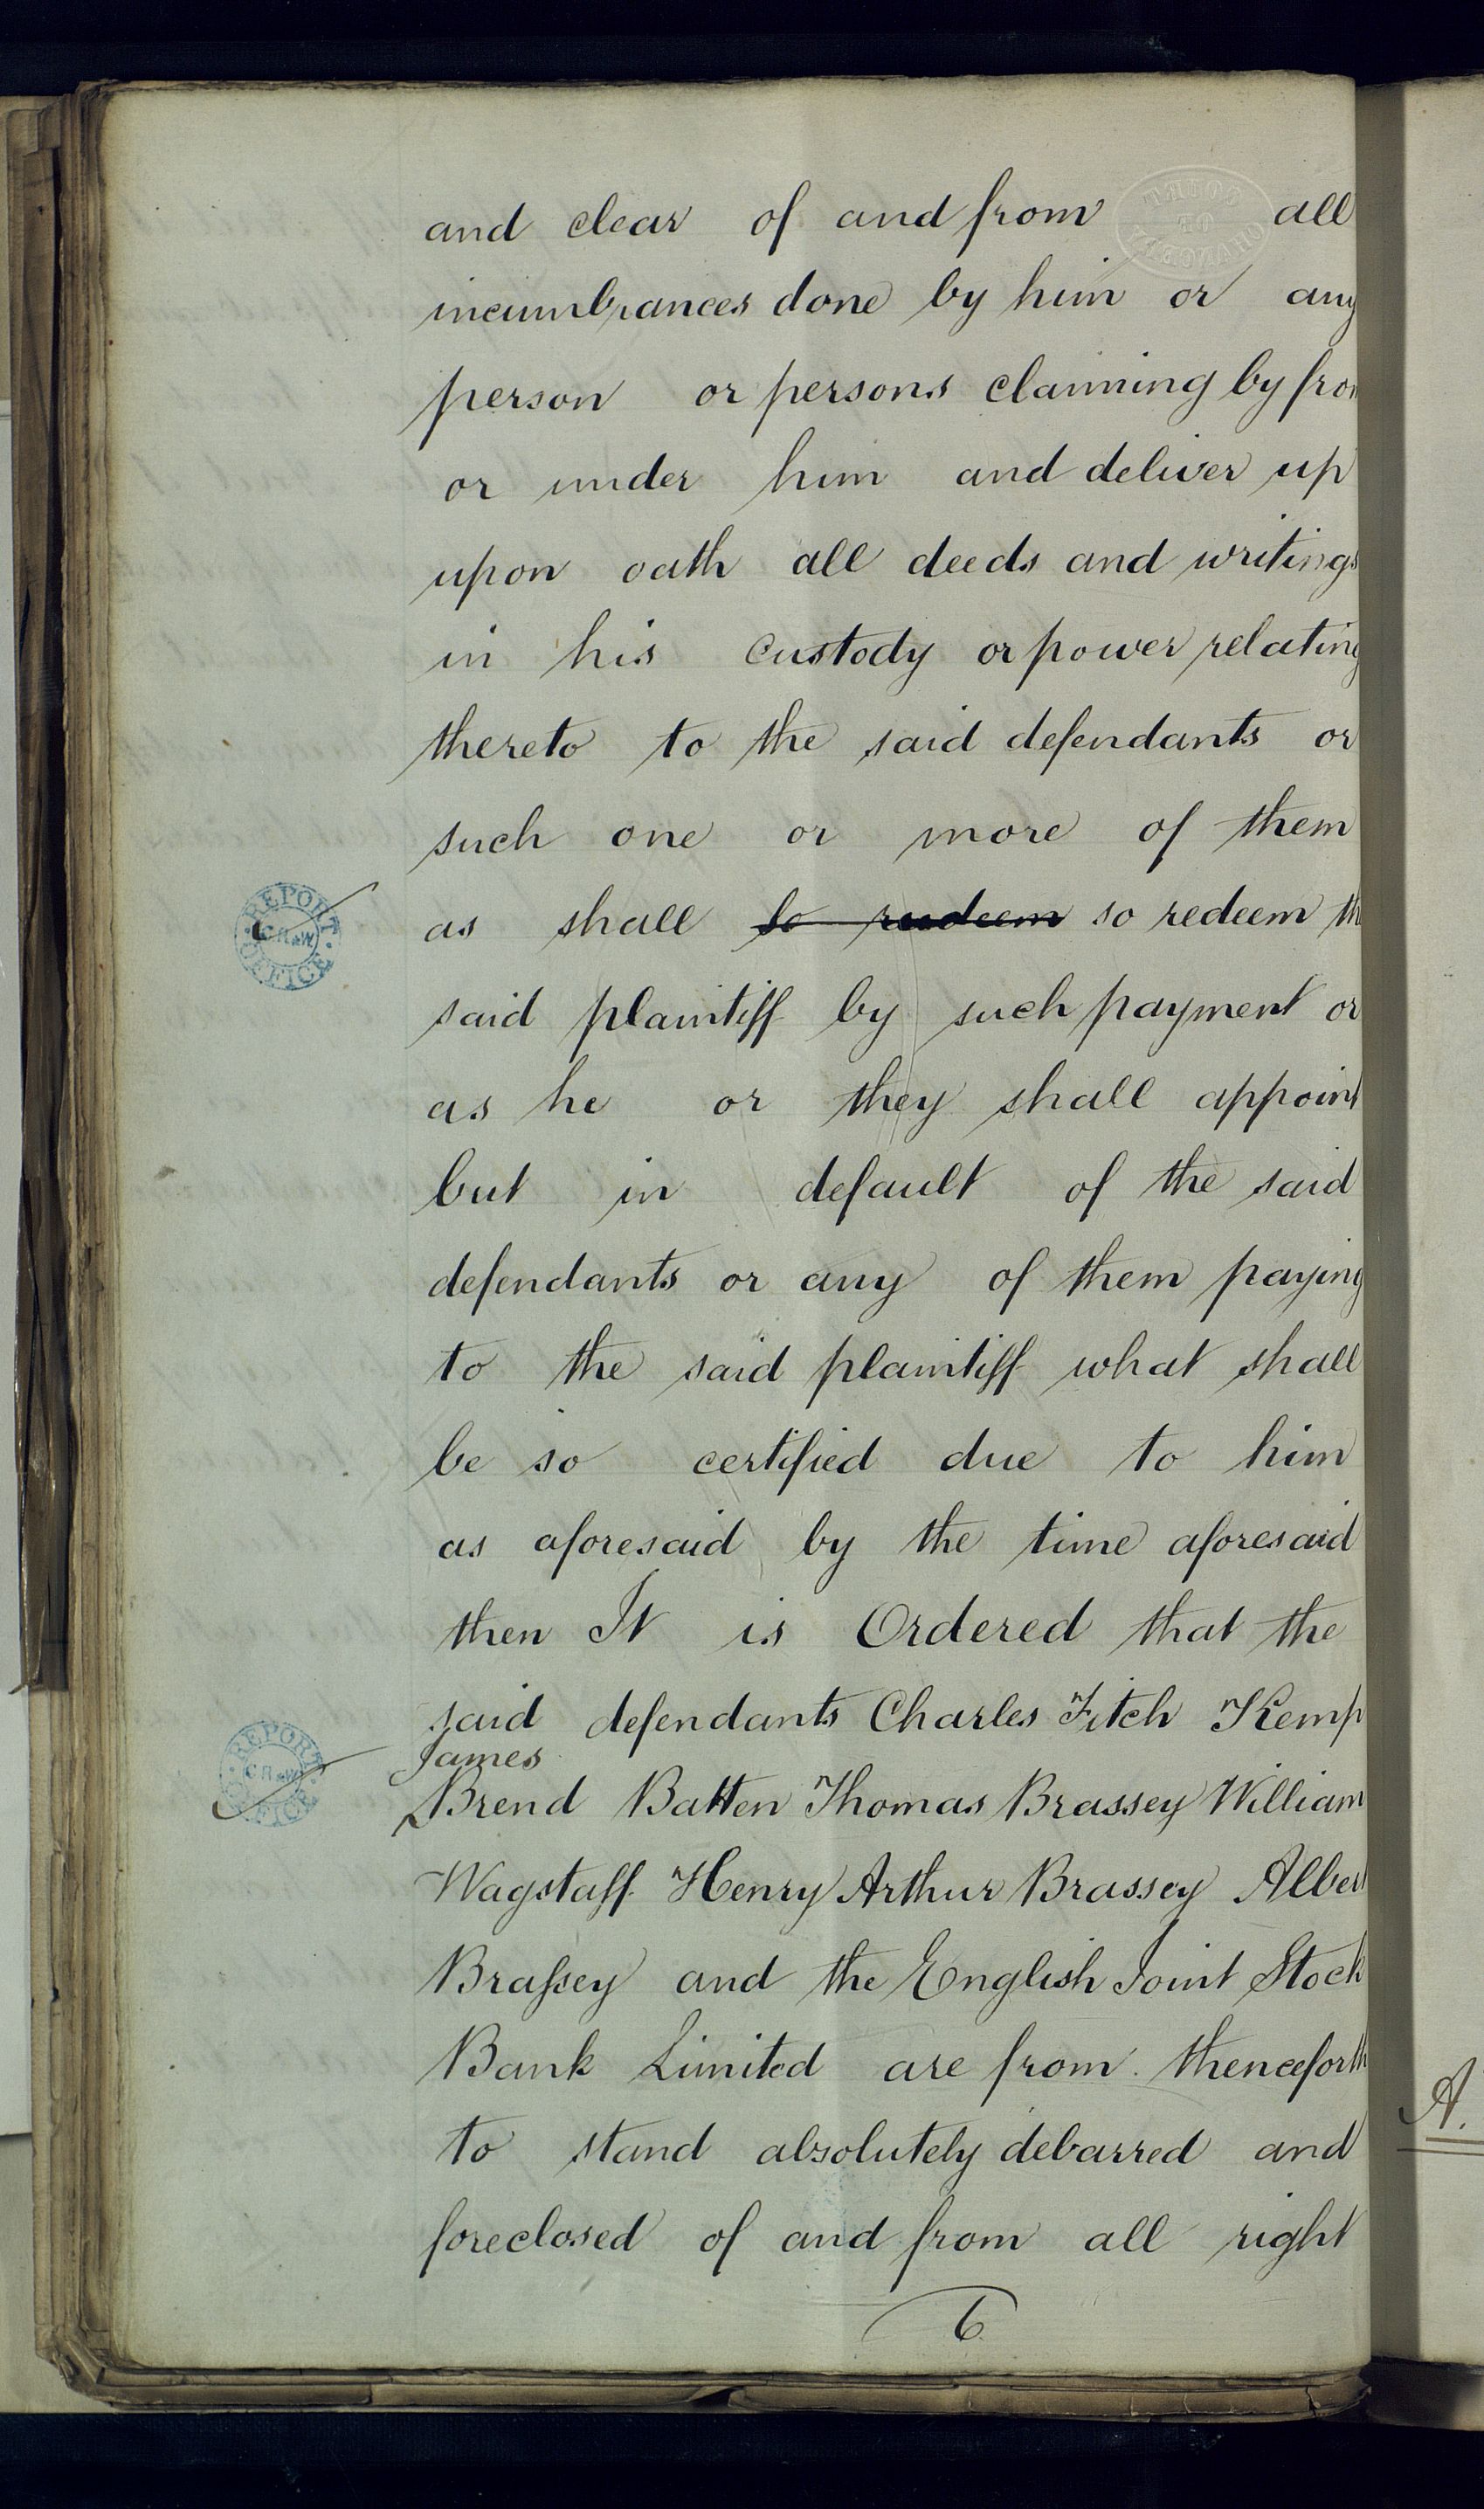 and clear of and from all
incumbrances done by him or any
person or persons claiming by from
or under him and deliver up
upon oath all deeds and writings
in his custody or power relating
thereto to the said defendants or
such one or more of them
as shall so redeem so redeem the
said plaintiff by such payment or
as he or they shall appoint
but in default of the said
defendants or any of them paying
to the said plaintiff what shall
be so certified due to him
as aforesaid by the time aforesaid
then It is Ordered that the
said defendants Charles Fitch Kemp
James
Brend Batten Thomas Brassey William
Wagstaff Henry Arthur Brassey Albert
Braſsey and the English Joint Stock
Bank Limited are from thenceforth
to stand absolutely debarred and
foreclosed of and from all right
6
COURT OF CHANCERY
REPORT OFFICE
CR&W
REPORT OFFICE
CR&W
A.